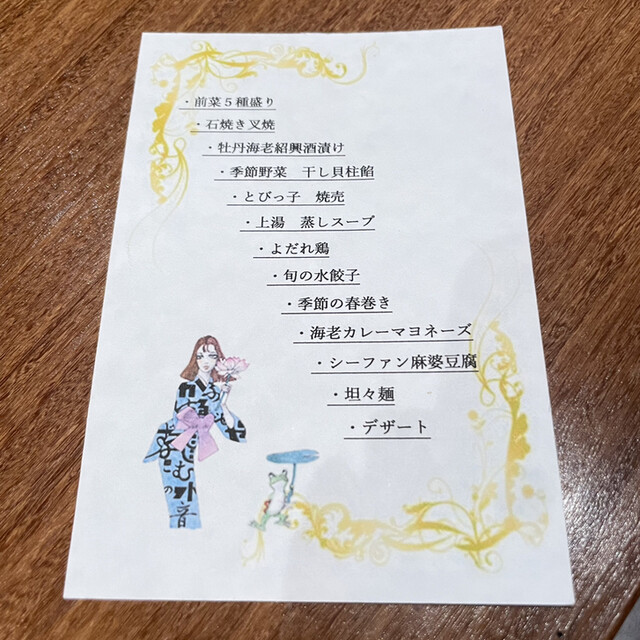 ・前菜５種盛り
・石焼き叉焼
・牡丹海老紹興酒漬け
・季節野菜　干し貝柱餡
・とびっ子　焼売
・上湯　蒸しスープ
・よだれ鶏
・旬の水餃子
・季節の春巻き
・海老カレーマヨネーズ
・シーファン麻婆豆腐
・坦々麺
・デザート